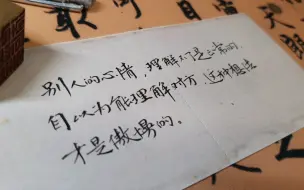 天
别人的心情，理解不了是正常的。
自以为能理解对方，这种想法
才是傲慢的。